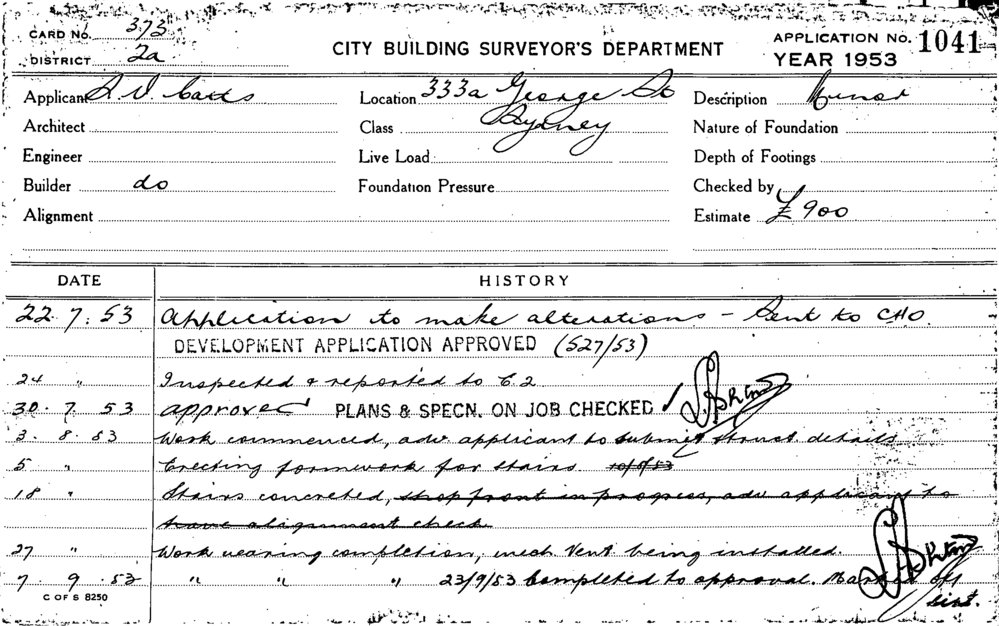 CARD No. 373
DISTRICT 2a
CITY BUILDING SURVEYOR'S DEPARTMENT
APPLICATION No. 1041
YEAR 1953
Applicant
Location 333a George St
Sydney
Description Minor
Architect
Class
Nature of Foundation
Engineer
Live Load
Depth of Footings
Builder do
Foundation Pressure
Checked by
Alignment
Estimate £900
DATE HISTORY
22. 7. 53 Application to make alterations - Sent to CHO.
DEVELOPMENT APPLICATION APPROVED (527/53)
24 " Inspected & reported to C.2
30. 7. 53 approved PLANS & SPECN. ON JOB CHECKED ✓
3. 8. 53 Work commenced, adv applicant to submit struct details
5 " Erecting formwork for stairs
18 " Stairs concreted, shop front in progress, adv applicant to
have alignment check
27 " Work nearing completion, mech. Vent being installed.
7. 9. 53 " " " 23/9/53 Completed to approval. Marked off
C OF S 8250